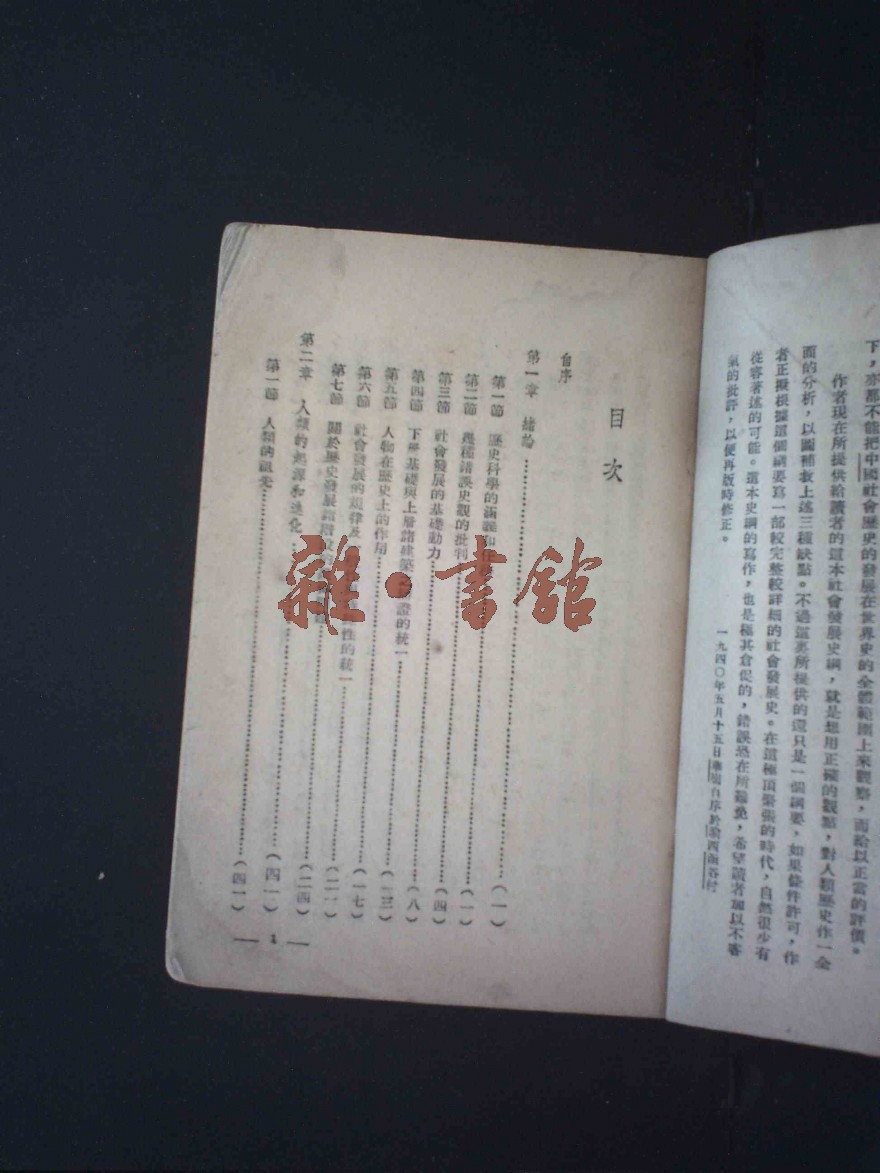 下，亦都不能把中國社會歷史的發展在世界史的全體範圍上來觀察，而給以正當的評價。
作者現在所提供給讀者的這本社會發展史綱，就是想用正確的觀點，對人類歷史作一全
面的分析，以圖補救上述三種缺點。不過這裏所提供的還只是一個綱要，如果條件許可，作
者正擬根據這個綱要寫一部較完整較詳細的社會發展史。在這極頂緊張的時代，自然很少有
從容著述的可能。這本史綱的寫作，也是極其倉促的，錯誤恐在所難免，希望讀者加以不客
氣的批評，以便再版時修正。
一九四〇年五月十五日華崗自序於渝西谷村
目次
自序
第一章 緒論……（一）
第一節 歷史科學的涵義和……（一）
第二節 幾種錯誤史觀的批判……（四）
第三節 社會發展的基礎動力……（八）
第四節 下層基礎與上層諸建築證的統一……（一三）
第五節 人物在歷史上的作用……（一七）
第六節 社會發展的規律及性的統一……（二一）
第七節 關於歷史發展諸階段……（二四）
第二章 人類的起源和進化……（四一）
第一節 人類的祖先……（四一）
— 1 —
雜·書館